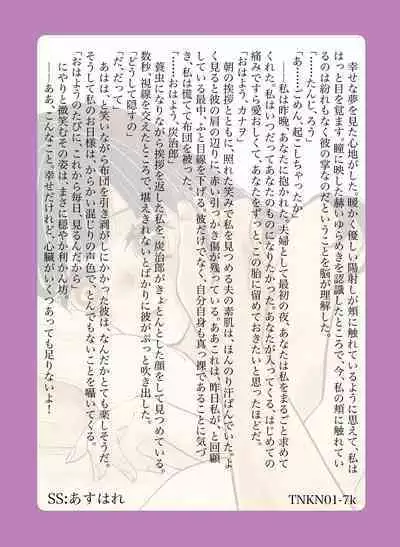 幸せな夢を見た心地がした。暖かく優しい陽射しが頬に触れているように思えて、私は
はっと目を覚ます。瞳に映した赫いゆらめきを認識したところで、今、私の頬に触れてい
るのは紛れもなく彼の掌なのだということを脳が理解した。
「……たんじ、ろう」
「あ……ごめん、起こしちゃったか」
――私は昨晩、あなたに抱かれた。夫婦として最初の夜、あなたは私をまるごと求めて
くれた。私はいつだってあなたのものになりたかった。あなたが入ってくる、はじめての
痛みですら愛おしくて、あなたをずっと、この胎に留めておきたいと思ったほどだ。
「おはよう、カナヲ」
朝の挨拶とともに、照れた笑みで私を見つめる夫の素肌は、ほんのり汗ばんでいた。よ
く見ると彼の肩の辺りに、赤い引っかき傷が残っている。ああこれは、昨日私が、と回顧
している最中、ふと目線を下げる。彼だけでなく、自分自身も真っ裸であることに気づ
き、私は慌てて布団を被った。
「……おはよう、炭治郎」
蓑虫になりながら挨拶を返した私を、炭治郎がきょとんとした顔をして見つめている。
数秒、視線を交えたところで、堪えきれないとばかりに彼がぷっと吹き出した。
「どうして隠すの」
「だ、だって」
あはは、と笑いながら布団を引き剥がしにかかった彼は、なんだかとても楽しそうだ。
そうして私のお日様は、からかい混じりの声色で、とんでもないことを囁いてくる。
「おはようのたびに、これから毎日、見るんだから」
にやりと微笑むその姿は、まさに穏やか利かん坊。
――ああ、こんなこと。幸せだけれど、心臓がいくつあっても足りないよ！
SS:あすはれ
TNKN01-7k